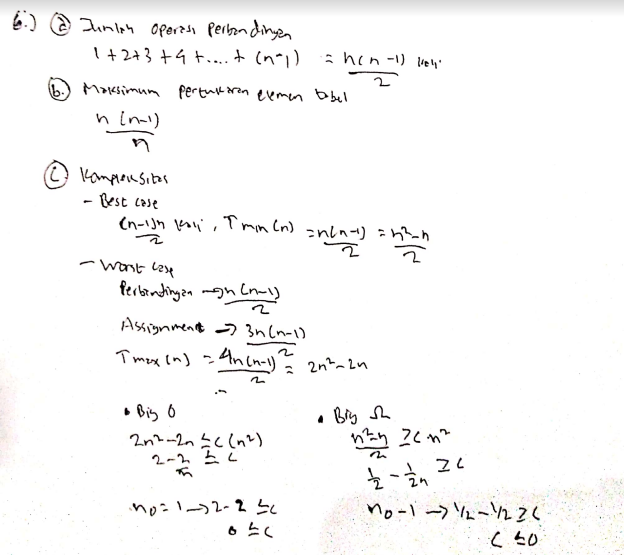 6.) (a) Jumlah operasi Perbandingan
1+2+3+4+....+ (n-1) = n(n-1)/2 kali
(b.) Maksimum Pertukaran elemen tabel
n(n-1)/n
(c) Kompleksitas
- Best case
(n-1)n/2 kali, Tmin(n) = n(n-1)/2 = n²-n/2
- Worst case
Perbandingan → n(n-1)/2
Assignment → 3n(n-1)/2
Tmax(n) = 4n(n-1)/2 = 2n²-2n
• Big O
2n²-2n ≤ c(n²)
2-2/n ≤ c
n₀=1 → 2-2 ≤ c
0 ≤ c
• Big Ω
n²-n/2 ≥ cn²
1/2 - 1/2n ≥ c
n₀-1 → 1/2-1/2 ≥ c
c ≤ 0